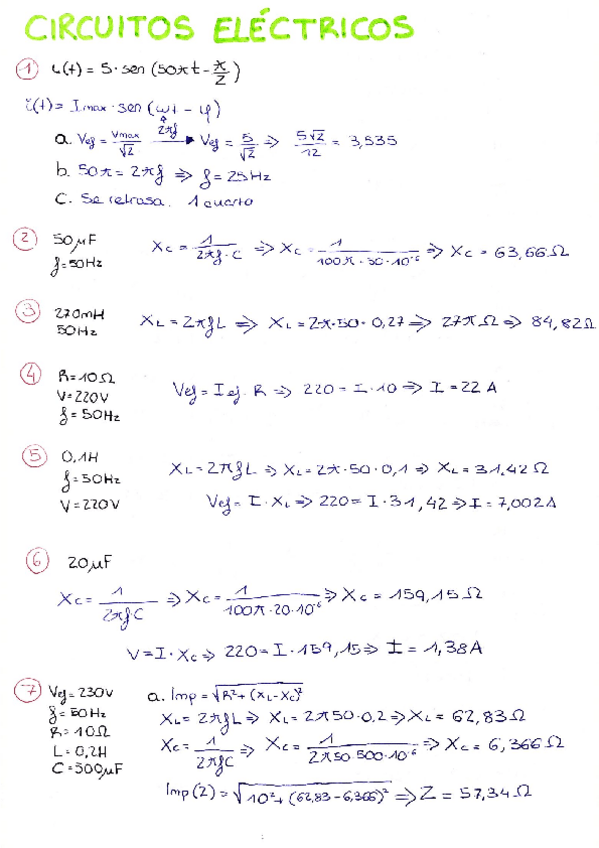 CIRCUITOS ELÉCTRICOS
① i(t) = 5· sen (50πt - π/2)
i(t) = Imax · sen (ωt - φ)
2πf
a. Vef = Vmax/√2 → Vef = 5/√2 => 5√2/12 = 3,535
b. 50π = 2πf => f = 25Hz
c. Se retrasa. 1 cuarto
② 50μF
f = 50Hz
Xc = 1/2πf·C => Xc = 1/100π·50·10⁻⁶ => Xc = 63,66Ω
③ 270mH
50Hz
XL = 2πfL => XL = 2π·50·0,27 => 27πΩ => 84,82Ω
④ R = 10Ω
V = 220V
f = 50Hz
Vef = I ef. R => 220 = I·10 => I = 22 A
⑤ 0,1H
f = 50Hz
V = 220V
XL = 2πfL => XL = 2π·50·0,1 => XL = 31,42Ω
Vef = I·XL => 220 = I·31,42 => I = 7,002A
⑥ 20μF
Xc = 1/2πfC => Xc = 1/100π·20·10⁻⁶ => Xc = 159,15Ω
V = I·Xc => 220 = I·159,15 => I = 1,38A
⑦ Vef = 230V
f = 50Hz
R = 10Ω
L = 0,2H
C = 500μF
a. Imp = √R²+(XL-Xc)²
XL = 2πfL => XL = 2π50·0,2 => XL = 62,83Ω
Xc = 1/2πfC => Xc = 1/2π50·500·10⁻⁶ => Xc = 6,366Ω
Imp(Z) = √10²+(62,83-6,366)² => Z = 57,34Ω